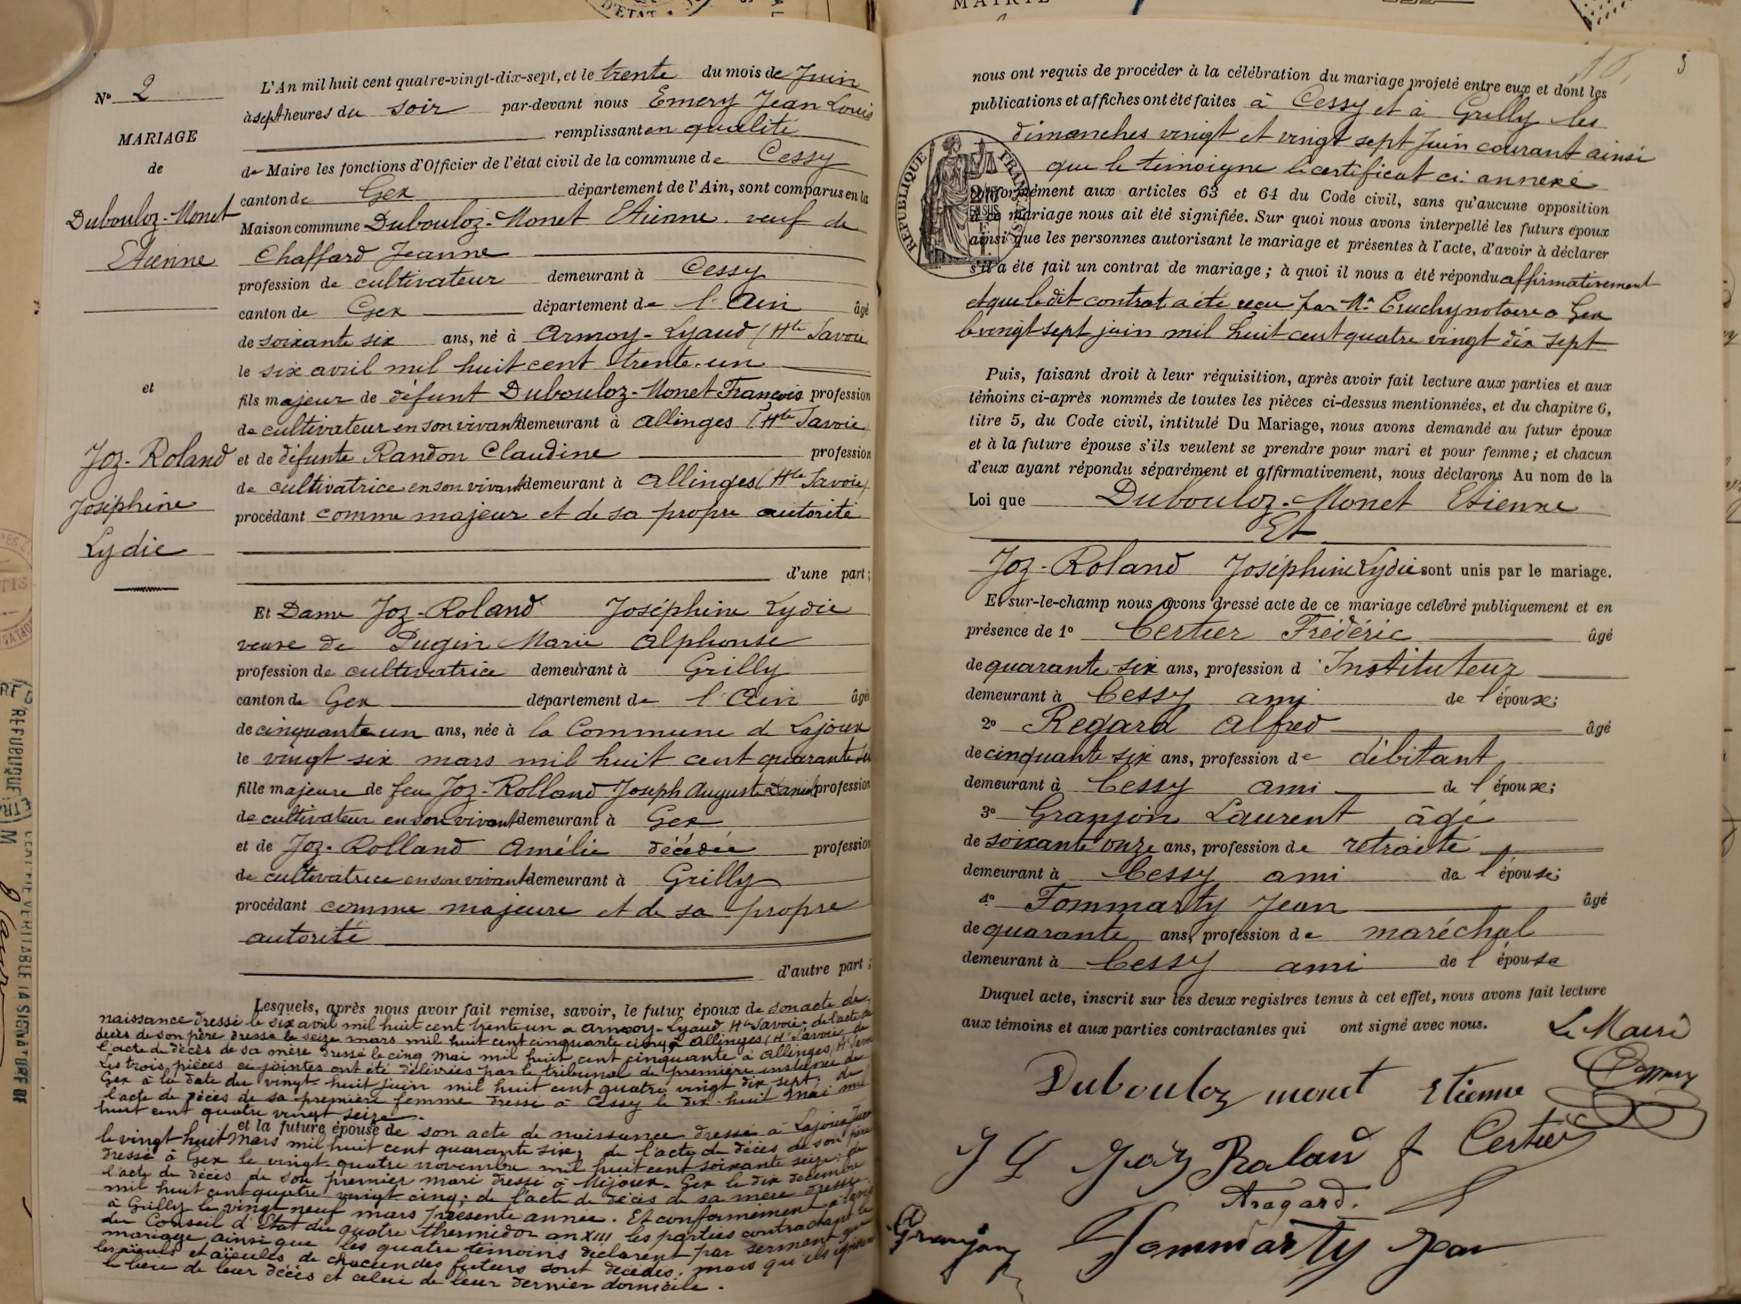 D'ÉTAT
MAIRIE
N° 2
MARIAGE
de
Dubouloz-Monet
Etienne
et
Joz-Roland
Joséphine
Lydie
L'An mil huit cent quatre-vingt-dix-sept, et le trente du mois de Juin
à sept heures du soir par-devant nous Emery Jean Louis
remplissant en qualité
de Maire les fonctions d'Officier de l'état civil de la commune de Cessy
canton de Gex département de l'Ain, sont comparus en la
Maison commune Dubouloz-Monet Etienne veuf de
Chaffard Jeanne
profession de cultivateur demeurant à Cessy
canton de Gex département de l'Ain âgé
de soixante six ans, né à Armoy-Lyaud (Hte Savoie
le six avril mil huit cent trente-un
fils majeur de défunt Dubouloz-Monet François profession
de cultivateur en son vivant demeurant à Allinges (Hte Savoie
et de défunte Randon Claudine profession
de cultivatrice en son vivant demeurant à Allinges (Hte Savoie)
procédant comme majeur et de sa propre autorité
d'une part;
Et Dame Joz-Roland Joséphine Lydie
veuve de Dugin Marie Alphonse
profession de cultivatrice demeurant à Grilly
canton de Gex département de l'Ain âgée
de cinquante un ans, née à la Commune de Lajoux
le vingt six mars mil huit cent quarante six
fille majeure de feu Joz-Rolland Joseph Auguste Daniel profession
de cultivateur en son vivant demeurant à Gex
et de Joz-Rolland Amélie décédée profession
de cultivatrice en son vivant demeurant à Grilly
procédant comme majeure et de sa propre
autorité
d'autre part;
Lesquels, après nous avoir fait remise, savoir, le futur époux de son acte de
naissance dressé le six avril mil huit cent trente un à Armoy-Lyaud Hte Savoie, de l'acte de
décès de son père dressé le seize mars mil huit cent cinquante cinq à Allinges (Hte Savoie, de
l'acte de décès de sa mère dressé le cinq mai mil huit cent cinquante à Allinges, Hte Savoie
Les trois pièces ci jointes ont été délivrées par le tribunal de première instance de
Gex à la date du vingt-huit juin mil huit cent quatre vingt dix sept, de
l'acte de décès de sa première femme dressé à Cessy le dix-huit mai mil
huit cent quatre vingt seize.
et la future épouse de son acte de naissance dressé à Lajoux Jura
le vingt huit mars mil huit cent quarante six, de l'acte de décès de son père
dressé à Gex le vingt-quatre novembre mil huit cent soixante seize, de
l'acte de décès de son premier mari dressé à Mijoux-Gex le dix décembre
mil huit cent quatre vingt cinq; de l'acte de décès de sa mère dressé
à Grilly le vingt neuf mars présente année. Et conformément à l'avis
du Conseil d'Etat du quatre thermidor an XIII les parties contractant le
mariage ainsi que les quatre témoins déclarent par serment que
les aïeuls et aïeules de chacun des futurs sont décédés; mais qu'ils ignorent
le lieu de leur décès et celui de leur dernier domicile.
nous ont requis de procéder à la célébration du mariage projeté entre eux et dont les
publications et affiches ont été faites à Cessy et à Grilly les
dimanches vingt et vingt sept Juin courant ainsi
que le témoigne le certificat ci-annexé
conformément aux articles 63 et 64 du Code civil, sans qu'aucune opposition
à ce mariage nous ait été signifiée. Sur quoi nous avons interpellé les futurs époux
ainsi que les personnes autorisant le mariage et présentes à l'acte, d'avoir à déclarer
s'il a été fait un contrat de mariage; à quoi il nous a été répondu affirmativement
et que le dit contrat a été reçu par Me Cruchy notaire à Gex
le vingt sept juin mil huit cent quatre vingt dix sept
RÉPUBLIQUE FRANÇAISE
Puis, faisant droit à leur réquisition, après avoir fait lecture aux parties et aux
témoins ci-après nommés de toutes les pièces ci-dessus mentionnées, et du chapitre 6,
titre 5, du Code civil, intitulé Du Mariage, nous avons demandé au futur époux
et à la future épouse s'ils veulent se prendre pour mari et pour femme; et chacun
d'eux ayant répondu séparément et affirmativement, nous déclarons Au nom de la
Loi que Dubouloz-Monet Etienne
Et
Joz-Roland Joséphine Lydie sont unis par le mariage.
Et sur-le-champ nous avons dressé acte de ce mariage célébré publiquement et en
présence de 1° Certier Frédéric âgé
de quarante six ans, profession d'Instituteur
demeurant à Cessy ami de l'épouse;
2° Regard Alfred âgé
de cinquante six ans, profession de débitant
demeurant à Cessy ami de l'épouse;
3° Granjon Laurent âgé
de soixante onze ans, profession de retraité
demeurant à Cessy ami de l'épouse;
4° Fommarty Jean âgé
de quarante ans, profession de maréchal
demeurant à Cessy ami de l'épouse
Duquel acte, inscrit sur les deux registres tenus à cet effet, nous avons fait lecture
aux témoins et aux parties contractantes qui ont signé avec nous. Le Maire
Emery
Dubouloz monet Etienne
J L Joz Roland f Certier
Aregard.
Granjon Fommarty Jean